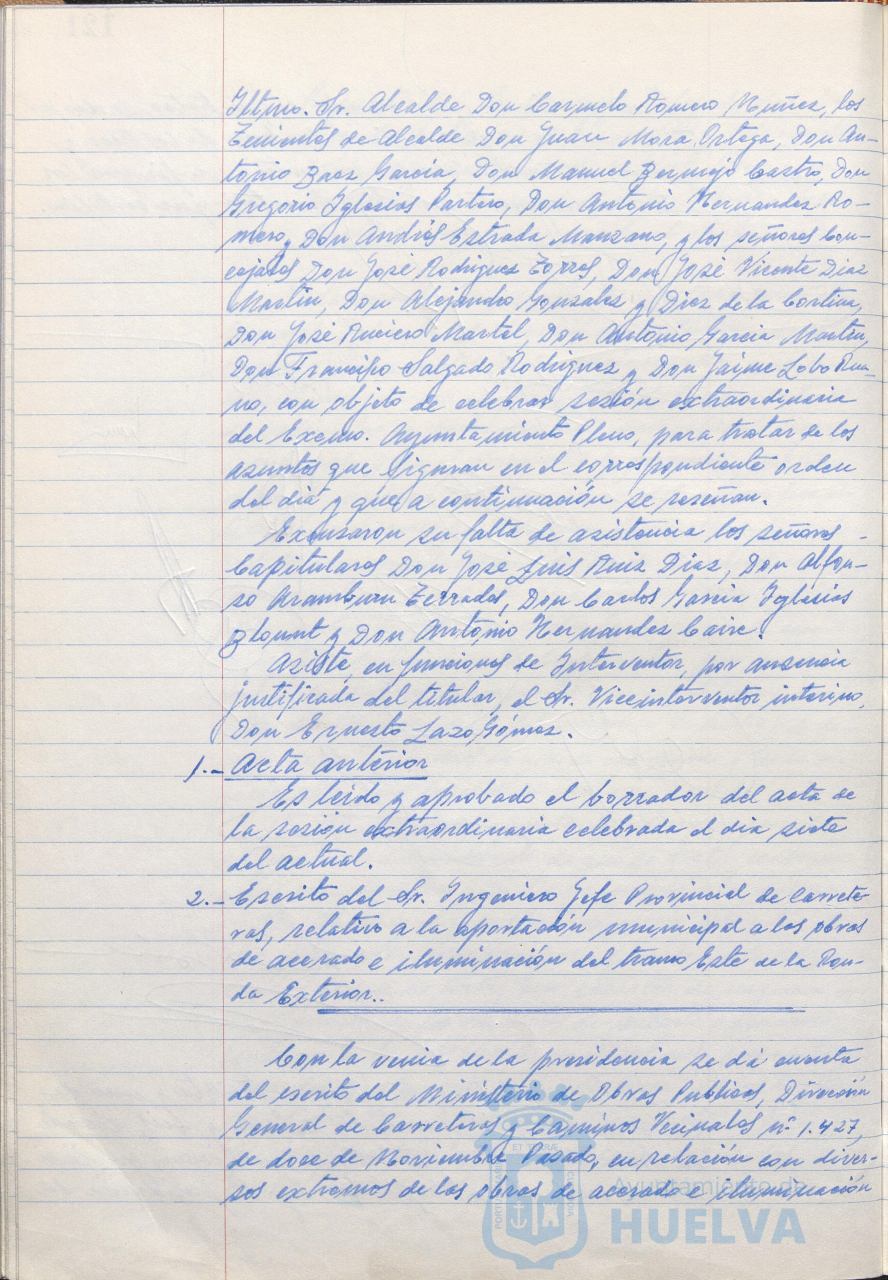 Iltmo. Sr. Alcalde Don Carmelo Romero Nuñez, los
Tenientes de Alcalde Don Juan Mora Ortega, Don An-
tonio Baez Garcia, Don Manuel Bermejo Castro, Don
Gregorio Iglesias Partero, Don Antonio Hernandez Ro-
mero, y Don Andrés Estrada Manzano, y los señores Con-
cejales Don José Rodriguez Torres, Don José Vicente Diaz
Martin, Don Alejandro Gonzalez y Diez de la Cortina,
Don José Ruciero Martel, Don Antonio Garcia Martin,
Don Francisco Salgado Rodriguez y Don Jaime Lobo Rua-
no, con objeto de celebrar sesión extraordinaria
del Excmo. Ayuntamiento Pleno, para tratar de los
asuntos que figuran en el correspondiente orden
del dia y que a continuación se reseñan.
Excusaron su falta de asistencia los señores
Capitulares Don José Luis Ruiz Diaz, Don Alfon-
so Aramburu Terrades, Don Carlos Garcia Iglesias
Blount y Don Antonio Hernandez Caire.
Asiste, en funciones de Interventor, por ausencia
justificada del titular, el Sr. Viceinterventor interino,
Don Ernesto Lazo Gómez.
1.- Acta anterior
Es leido y aprobado el borrador del acta de
la sesión extraordinaria celebrada el dia siete
del actual.
2.- Escrito del Sr. Ingeniero Jefe Provincial de Carrete-
ras, relativo a la aportación municipal a las obras
de acerado e iluminación del tramo Este de la Ron-
da Exterior..
Con la venia de la presidencia se dá cuenta
del escrito del Ministerio de Obras Publicas, Dirección
General de Carreteras y Caminos Vecinales nº 1.427,
de doce de Noviembre Pasado, en relación con diver-
sos extremos de las obras de acerado e iluminación
Ayuntamiento de
HUELVA